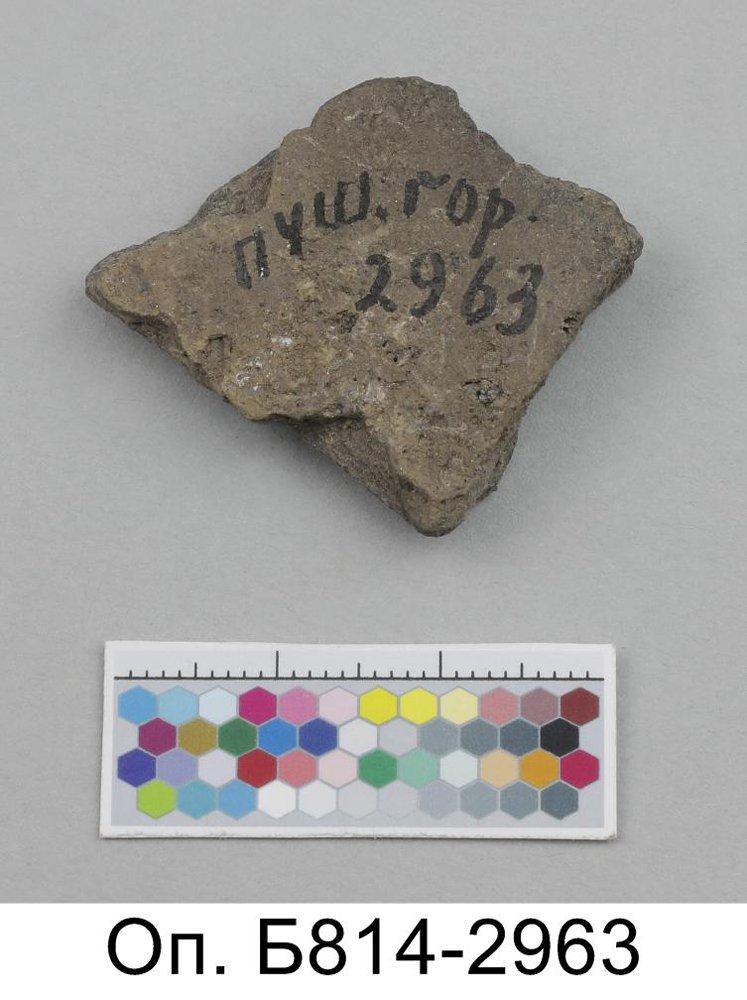 пуш. гор.
2963
Оп. Б814-2963